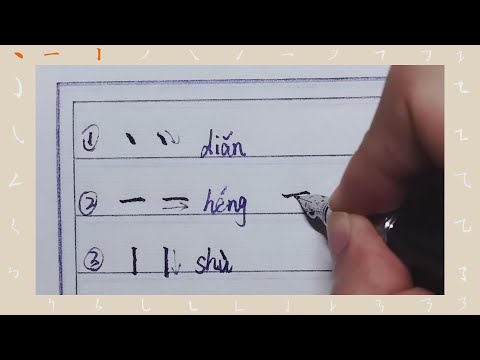 ① 丶 丶 diǎn
② 一 一 héng 一
③ 丨 丨 shù